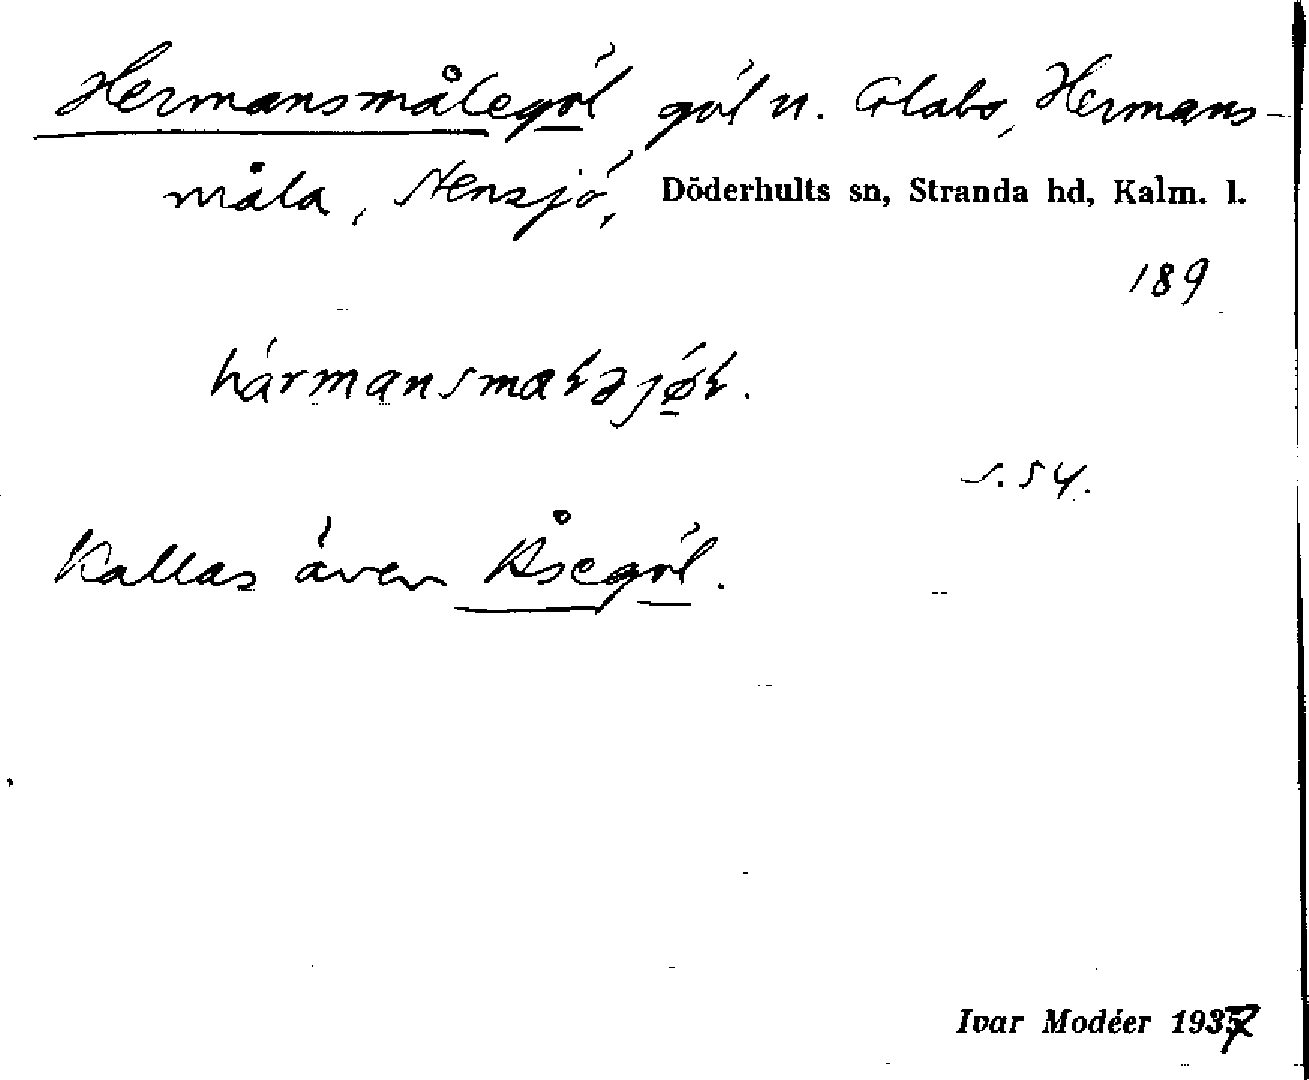 Hermansmålegöl göl u. Glabo, Hermans-
måla, Stensjö, Döderhults sn, Stranda hd, Kalm. l.
189
s. 54.
Kallas även Åsegöl.
Ivar Modéer 1937